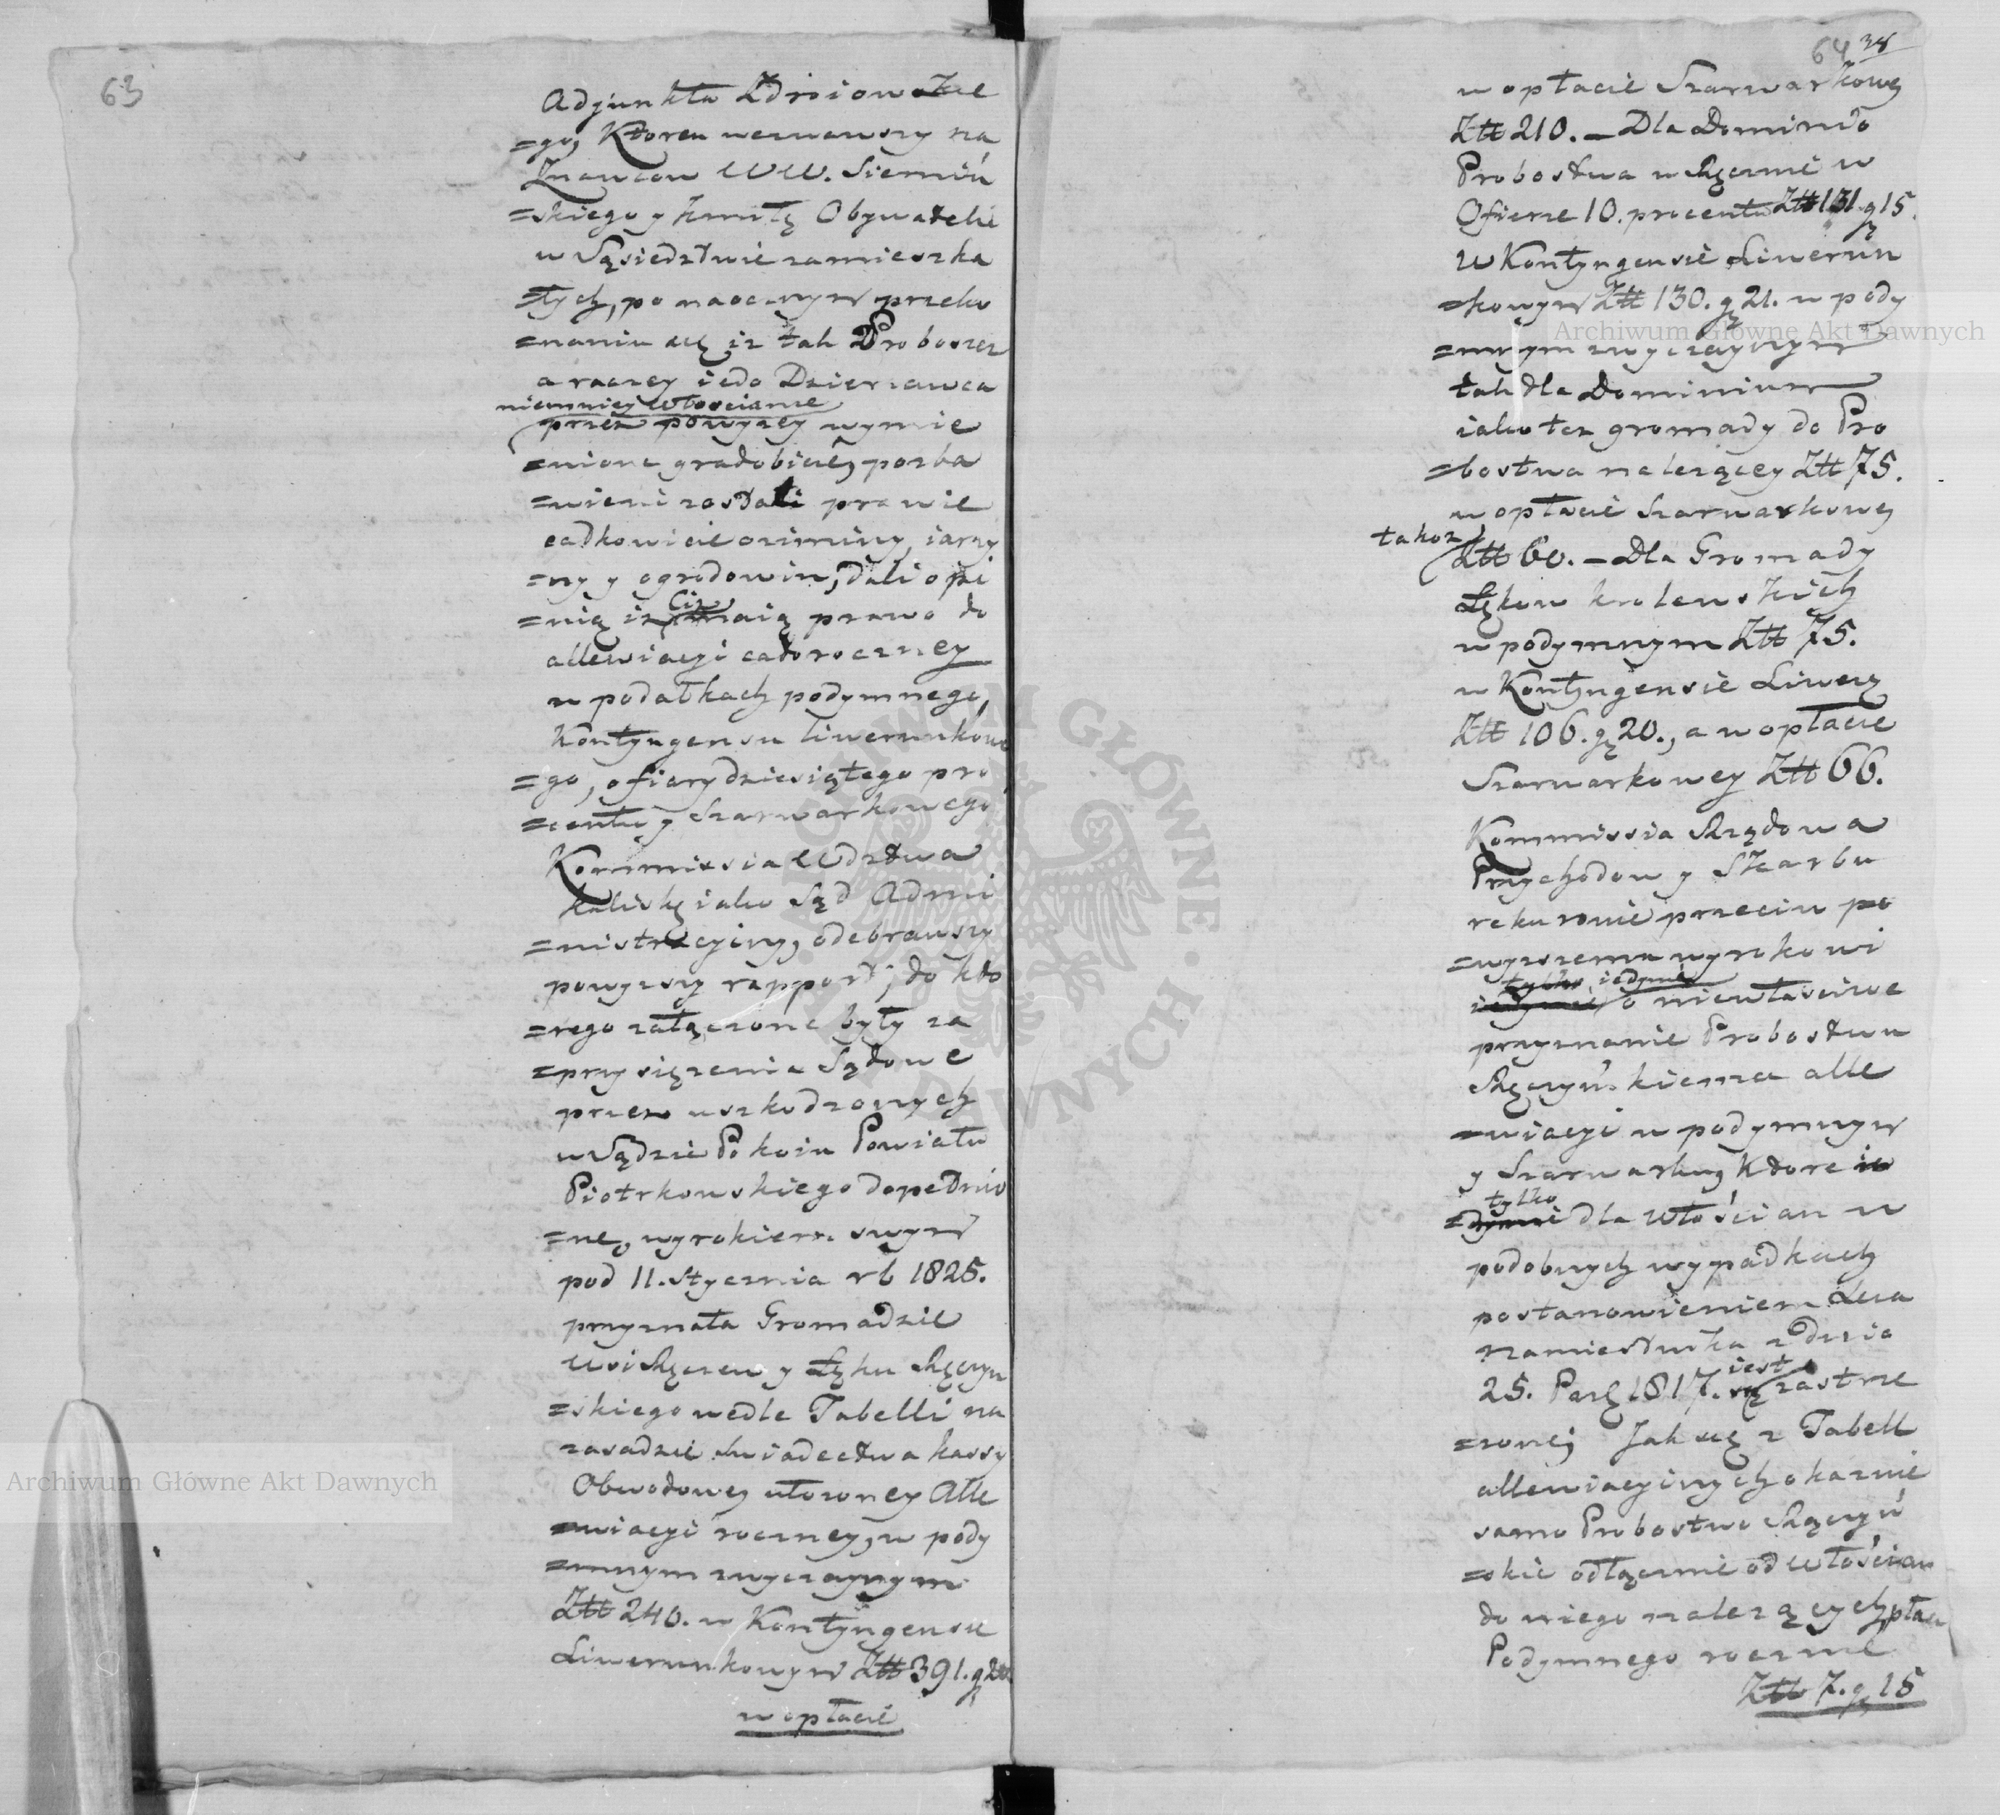 63
Adjunkta Zdriowskie
=go, Ktoren wezwawszy na
Znawcow WW. Siemiń
=skiego y Kmitę Obywateli
w Sąsiedztwie zamieszka
=łych, po naocznym przeko
=naniu się iż tak Proboszcz
a raczey iego Dzierżawca
niemniey Włościanie
przez powyżey wymie
=nione gradobicie, pozba
=wieni zostali prawie
całkowicie oziminy, iarzy
=ny y ogrodowin, dali opi
=nią iż Ciż maią prawo do
allewiacyi całoroczney
w podatkach podymnego,
Kontyngensu liwerunkowe
=go, ofiary dziesiątego pro
=centu y Szarwarkowego
Kommissia Wdztwa
Kaliskiego iako Sąd Admi
=nistracyiny, odebrawszy
powyższy rapport, do któ
=rego załączone były za
=przysiężenia Sądowe
przez uszkodzonych
w Sądzie Pokoiu Powiatu
Piotrkowskiego dopełnio
=ne, wyrokiem swym
pod 11. Stycznia rb 1825.
przyznała Gromadzie
Wsi Ręczew y Łęku Ręczyń
=skiego wedle Tabelli na
zasadzie Świadectwa kassy
Obwodowey ułożoney Alle
=wiacyi roczney, w pody
=mnym zwyczaynym
Ztt 240. w Kontyngensie
Liwerunkowym Ztt 391. g 20.
w opłacie
64 38
w opłacie Szarwarkowey
Ztt 210. – Dla Dominio
Probostwa w Ręcznie w
Ofierze 10. procentu Ztt 131 g 15.
w Kontyngensie Liwerun
=kowym Ztt 130. g 21. w pody
=mnym zwyczaynym
tak dla Dominium
iako też gromady do Pro
=bostwa należącey Ztt 75.
w opłacie Szarwarkowey
takoż
Ztt 60. – Dla Gromady
Łękow krolewskich
w podymnym Ztt 75.
w Kontyngensie Liwerz
Ztt 106. g 20., a w opłacie
Szarwarkowey Ztt 66.
Kommissia Rządowa
Przychodow y Skarbu
rekursuie przeciw po
=wyższemu wyrokowi
tylko, iedynie
iedynie o niewłaściwe
przyznanie Probostwu
Ręczyńskiemu alle
=wiacyi w podymnym
y Szarwarku, które ie
tylko
=dynie dla Włościan w
podobnych wypadkach
postanowieniem Xcia
Namiestnika z dnia
25. Paźd 1817. iest
są zastrze
=zone, Jak się z Tabell
allewiacyinych okazuie
samo Probostwo Ręczyń
=skie odłącznie od Włościan
do niego należących, płaci
Podymnego rocznie
Ztt 7. g 15
Archiwum Główne Akt Dawnych
Archiwum Główne Akt Dawnych
ARCHIWUM GŁÓWNE AKT DAWNYCH